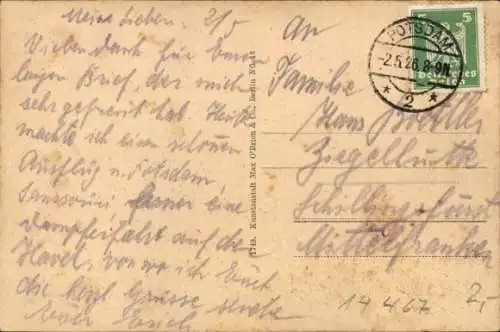 Meine Lieben. 2/5
Vielen Dank für Euren
langen Brief, der mich
sehr gefreut hat. Heute
machte ich einen schönen
Ausflug n. Potsdam
Sanssouci ferner eine
Dampferfahrt auf der
Havel, von wo ich Euch
die herzl. Grüsse sende
Euer Erich
1749. Kunstanstalt Max O'Brien & Co., Berlin NO. 43
An
Familie
Hans
Ziegelhütte
Schillingsfürst
Mittelfranken
5 5
Deutsches
Reich
POTSDAM
-2.5.26.8-9N.
* 2 *
14467
2,-